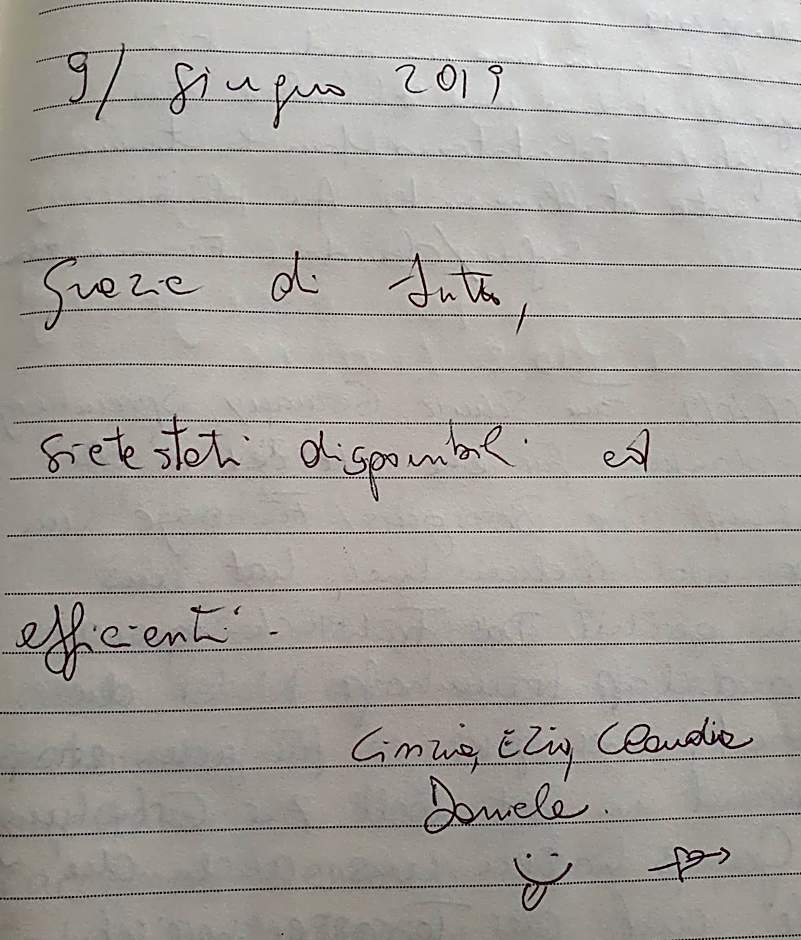 9/ giugno 2019
Grazie di tutto,
siete stati disponibili ed
efficienti.
Cinzia, Ezio, Claudia
Daniele.